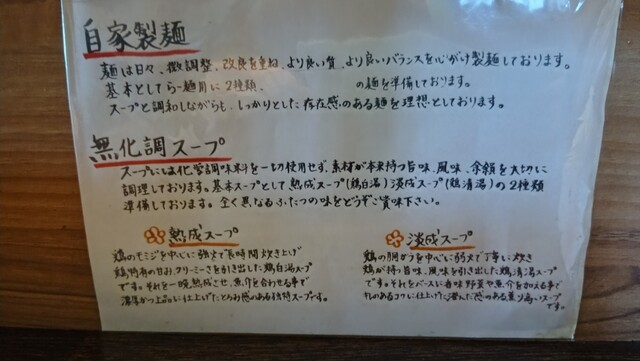 自家製麺
麺は日々、微調整、改良を重ね、より良い質、より良いバランスを心がけ製麺しております。
基本としてらー麺用に2種類、 の麺を準備しております。
スープと調和しながらも、しっかりとした存在感のある麺を理想としております。
無化調スープ
スープには化学調味料を一切使用せず、素材が本来持つ旨味、風味、余韻を大切に
調理しております。基本スープとして熟成スープ(鶏白湯)淡成スープ(鶏清湯)の2種類
準備しております。全く異なるふたつの味をどうぞご賞味下さい。
熟成スープ
鶏のモミジを中心に強火で長時間炊き上げ
鶏特有の甘み、クリーミーさを引き出した鶏白湯スープ
です。それを一晩熟成させ、魚介を合わせる事で
濃厚かつ上品に仕上げたとろみ感のある独特スープです。
淡成スープ
鶏の胴ガラを中心に弱火で丁寧に炊き
鶏が持つ旨味、風味を引き出した鶏清湯スープ
です。それをベースに香味野菜や魚介を加える事で
キレのあるコクに仕上げた澄んだ感のある薫り高いスープ
です。